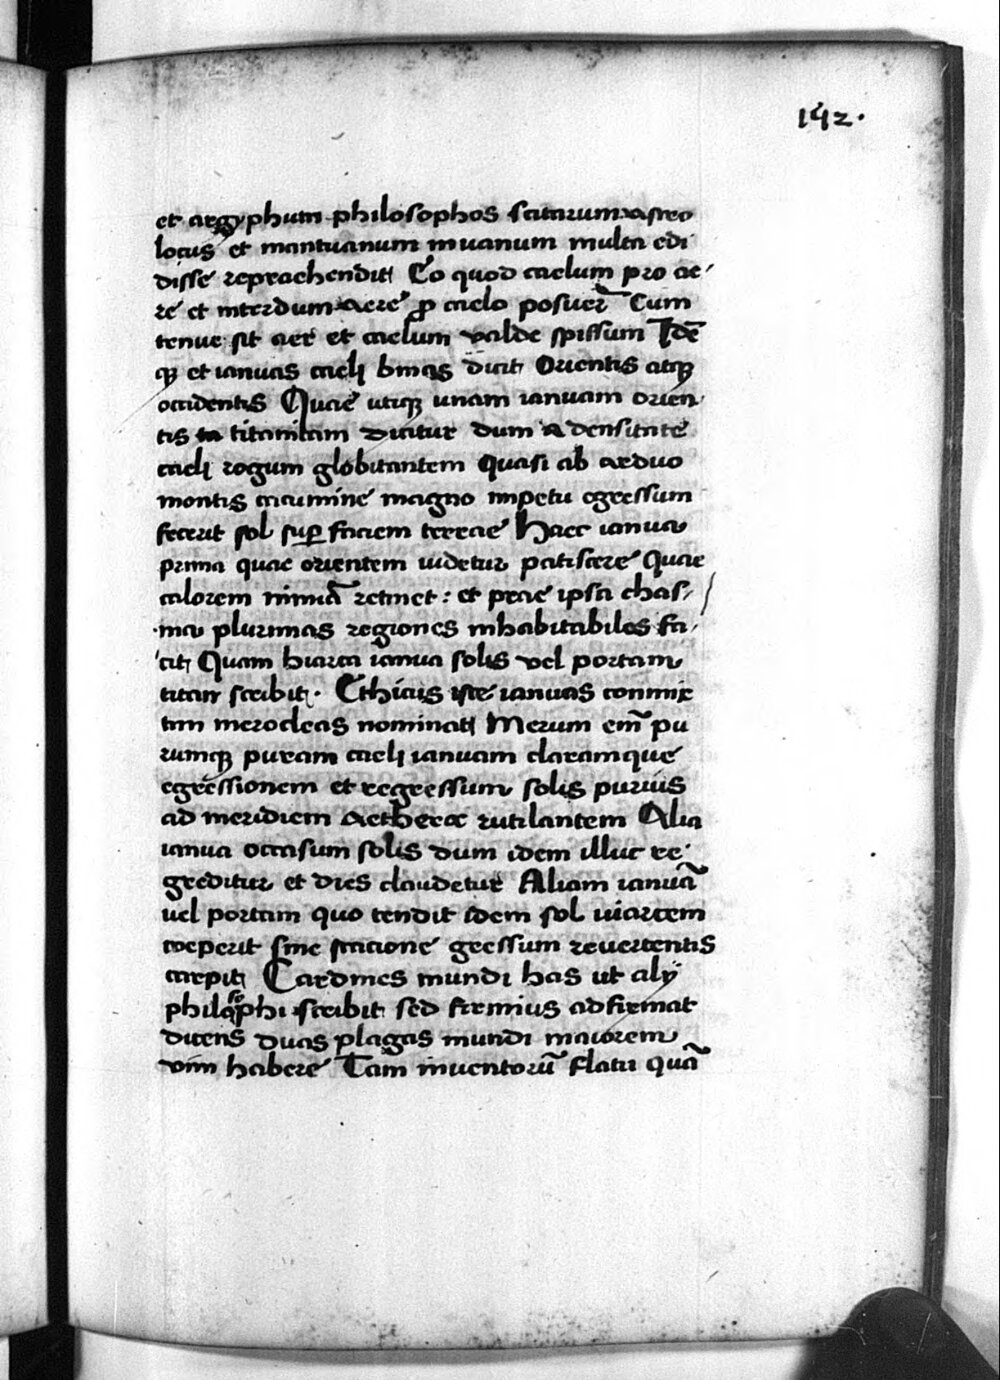 142.
et argyphum philosophos scitarum astreo
locus et mantuanum muanum multa edi
disse repraehendit Eo quod caelum pro ae
re et interdum aere ꝓ caelo posuer̄ Cum
tenue sit aer et caelum valde spissum Idē
qꝫ et ianuas caeli binas dicit Orientis atqꝫ
occidentis Quae utiqꝫ unam ianuam orien
tis ta titanicam dicitur dum a densitate
caeli rogum globitantem Quasi ab arduo
montis cacumine magno impetu egressum
fecerit sol suꝑ faciem terrae Haec ianua
prima quae orientem uidetur patiscere Quae
calorem nimiā retinet: et prae ipsa chas
ma plurimas regiones inhabitabiles fa
cit Quam hiarca ianua solis vel portam
titan scribit. Ethicus iste ianuas conmix
tim merocleas nominat Merum em̄ pu
rumqꝫ puram caeli ianuam claramque
egressionem et regressum solis purius
ad meridiem aetherae rutilantem Alia
ianua occasum solis dum idem illuc re
greditur et dies claudetur Aliam ianuā
uel portam quo tendit idem sol uiarcem
coeperit sine statione gressum reuertentis
carpit Cardines mundi has ut alij
philosophi scribit sed firmius adfirmat
dicens duas plagas mundi maiorem
vim habere Tam inuentorū flatu quā